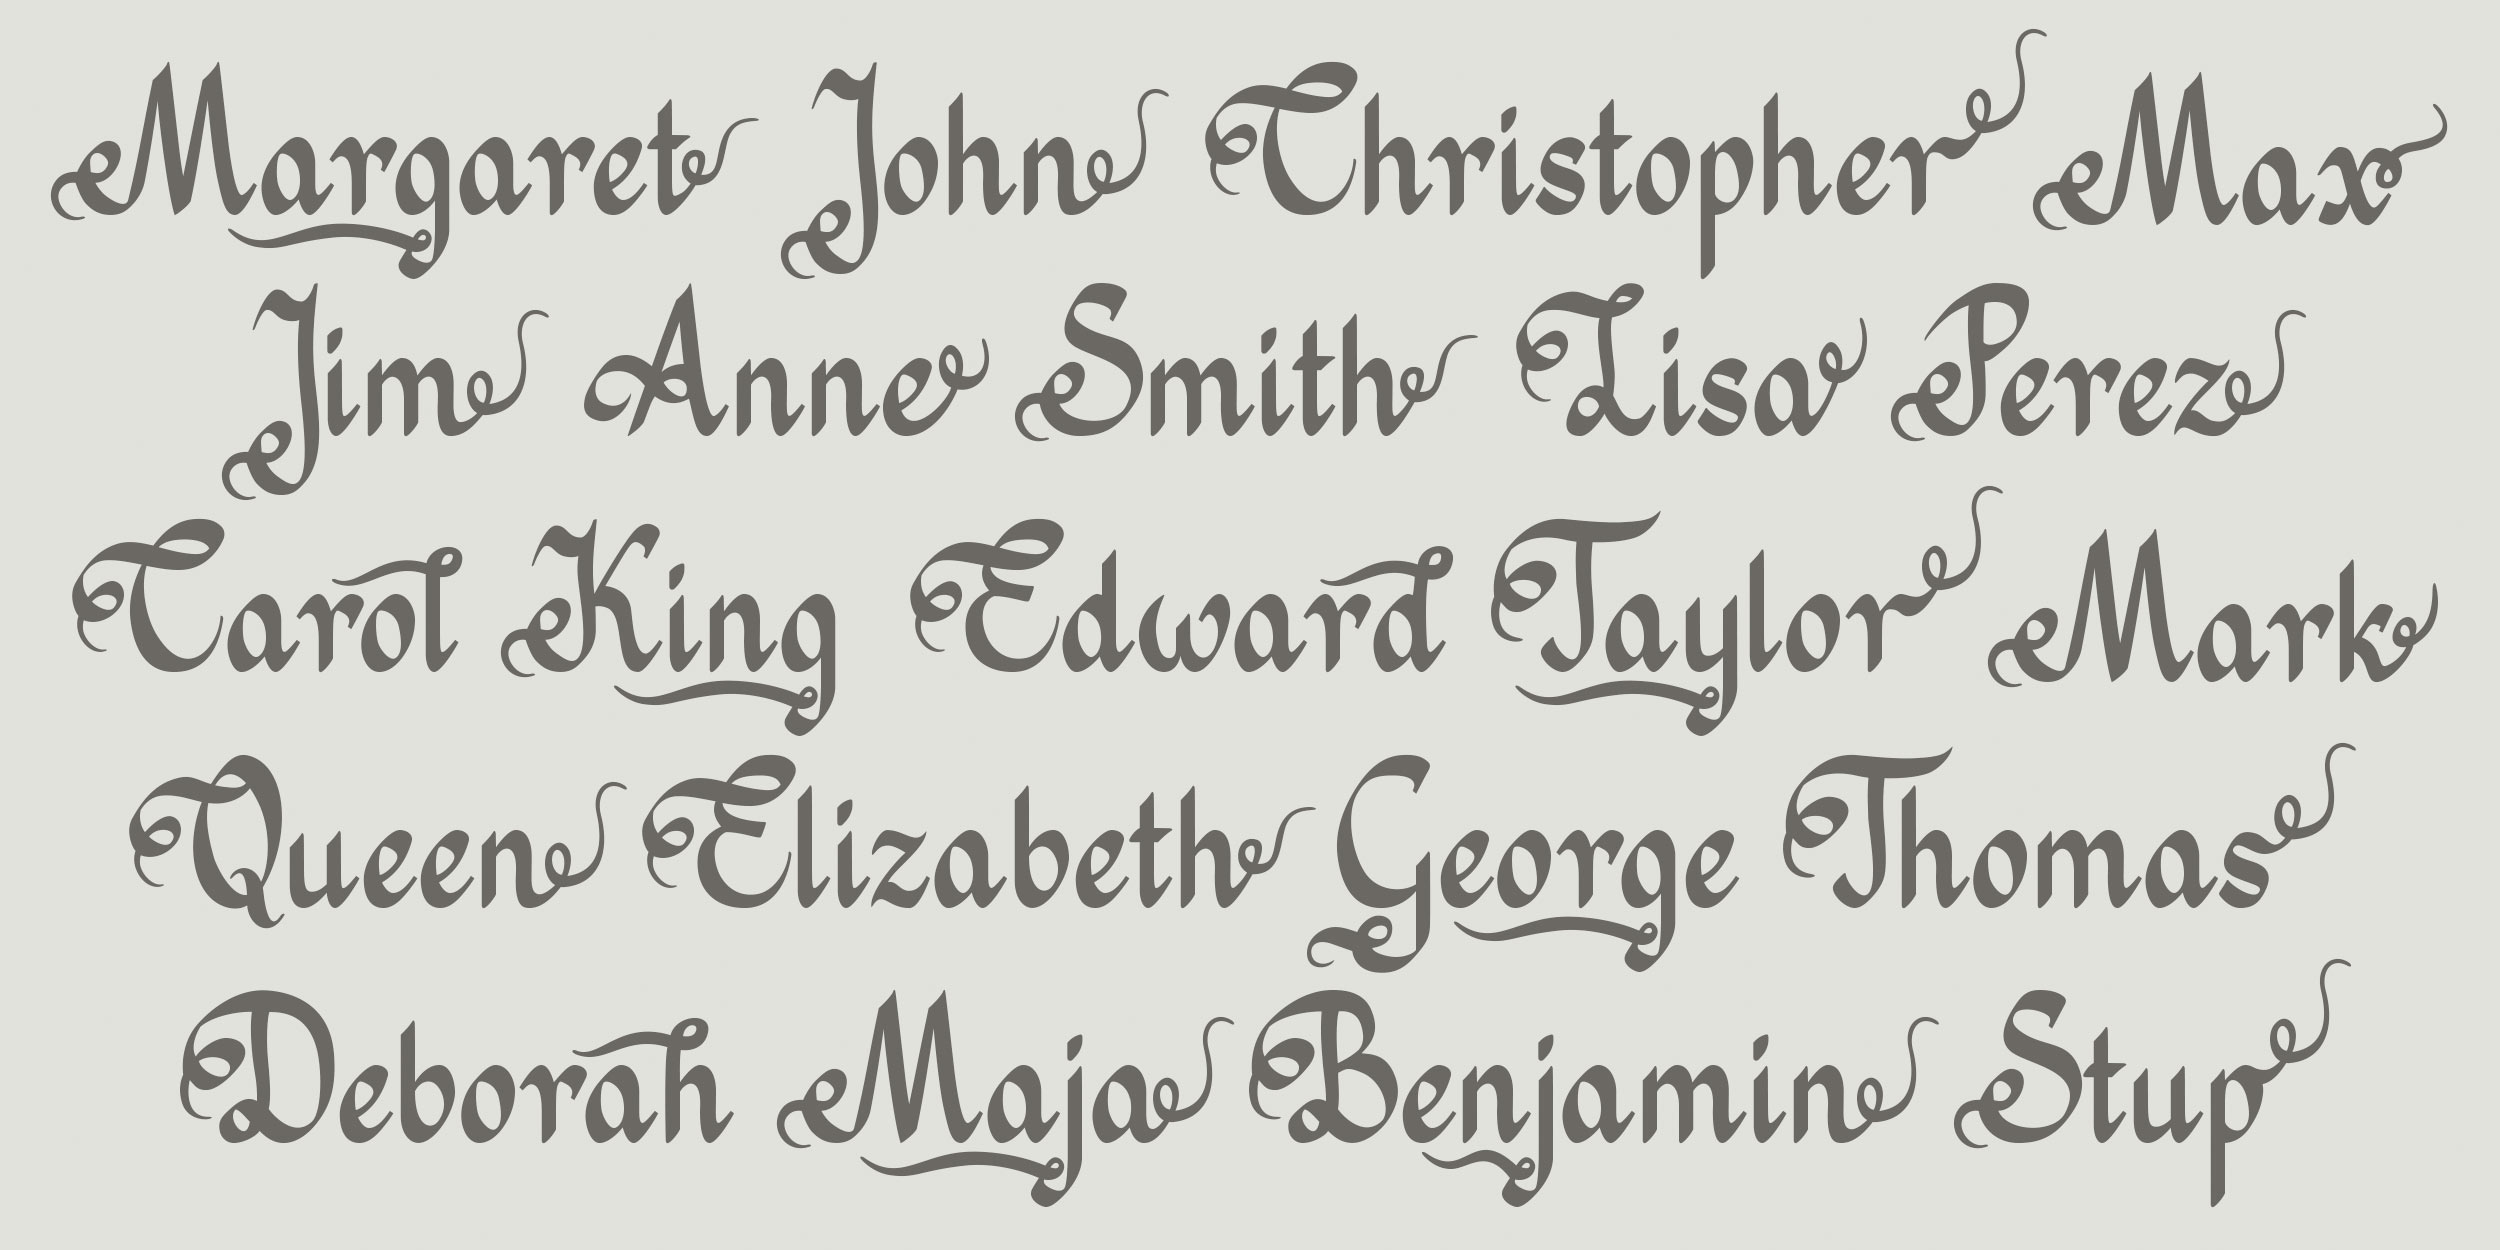 Margaret John Christopher Max
Jim Anne Smith Lisa Perez
Carol King Edward Taylor Mark
Queen Elizabeth George Thomas
Deborah Major Benjamin Stup